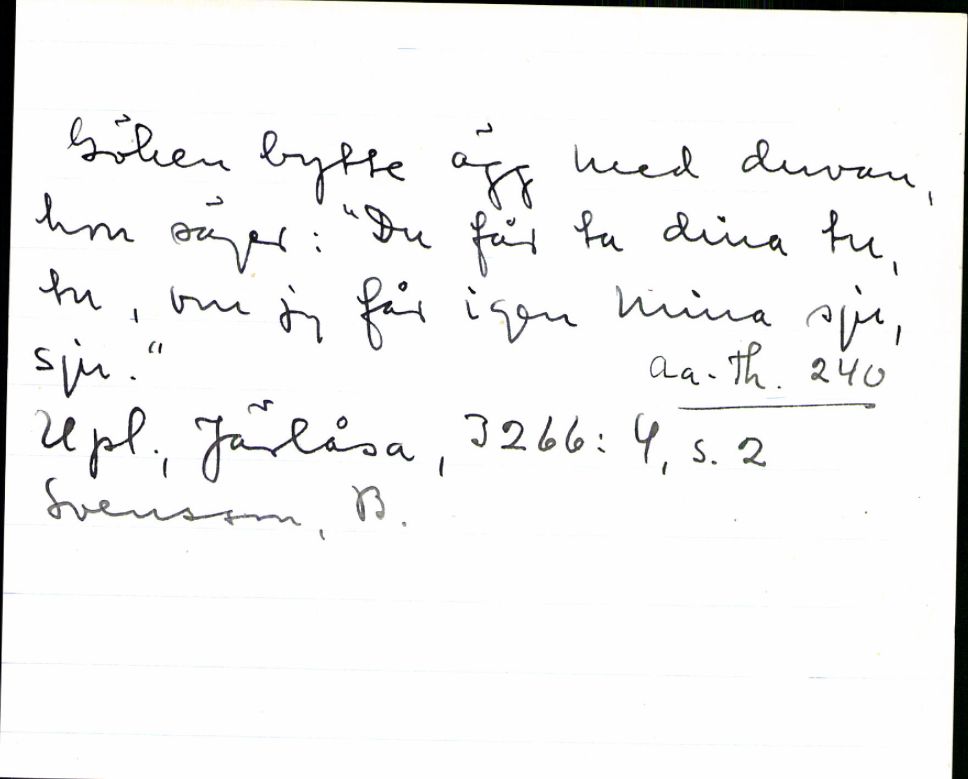 Göken bytte ägg med duvan,
hon säger: "Du får ta dina tu,
tu, om jg får igen mina sju,
sju."
Aa-Th. 240
Upl., Järlåsa, 3266: 4, s. 2
Svensson, B.